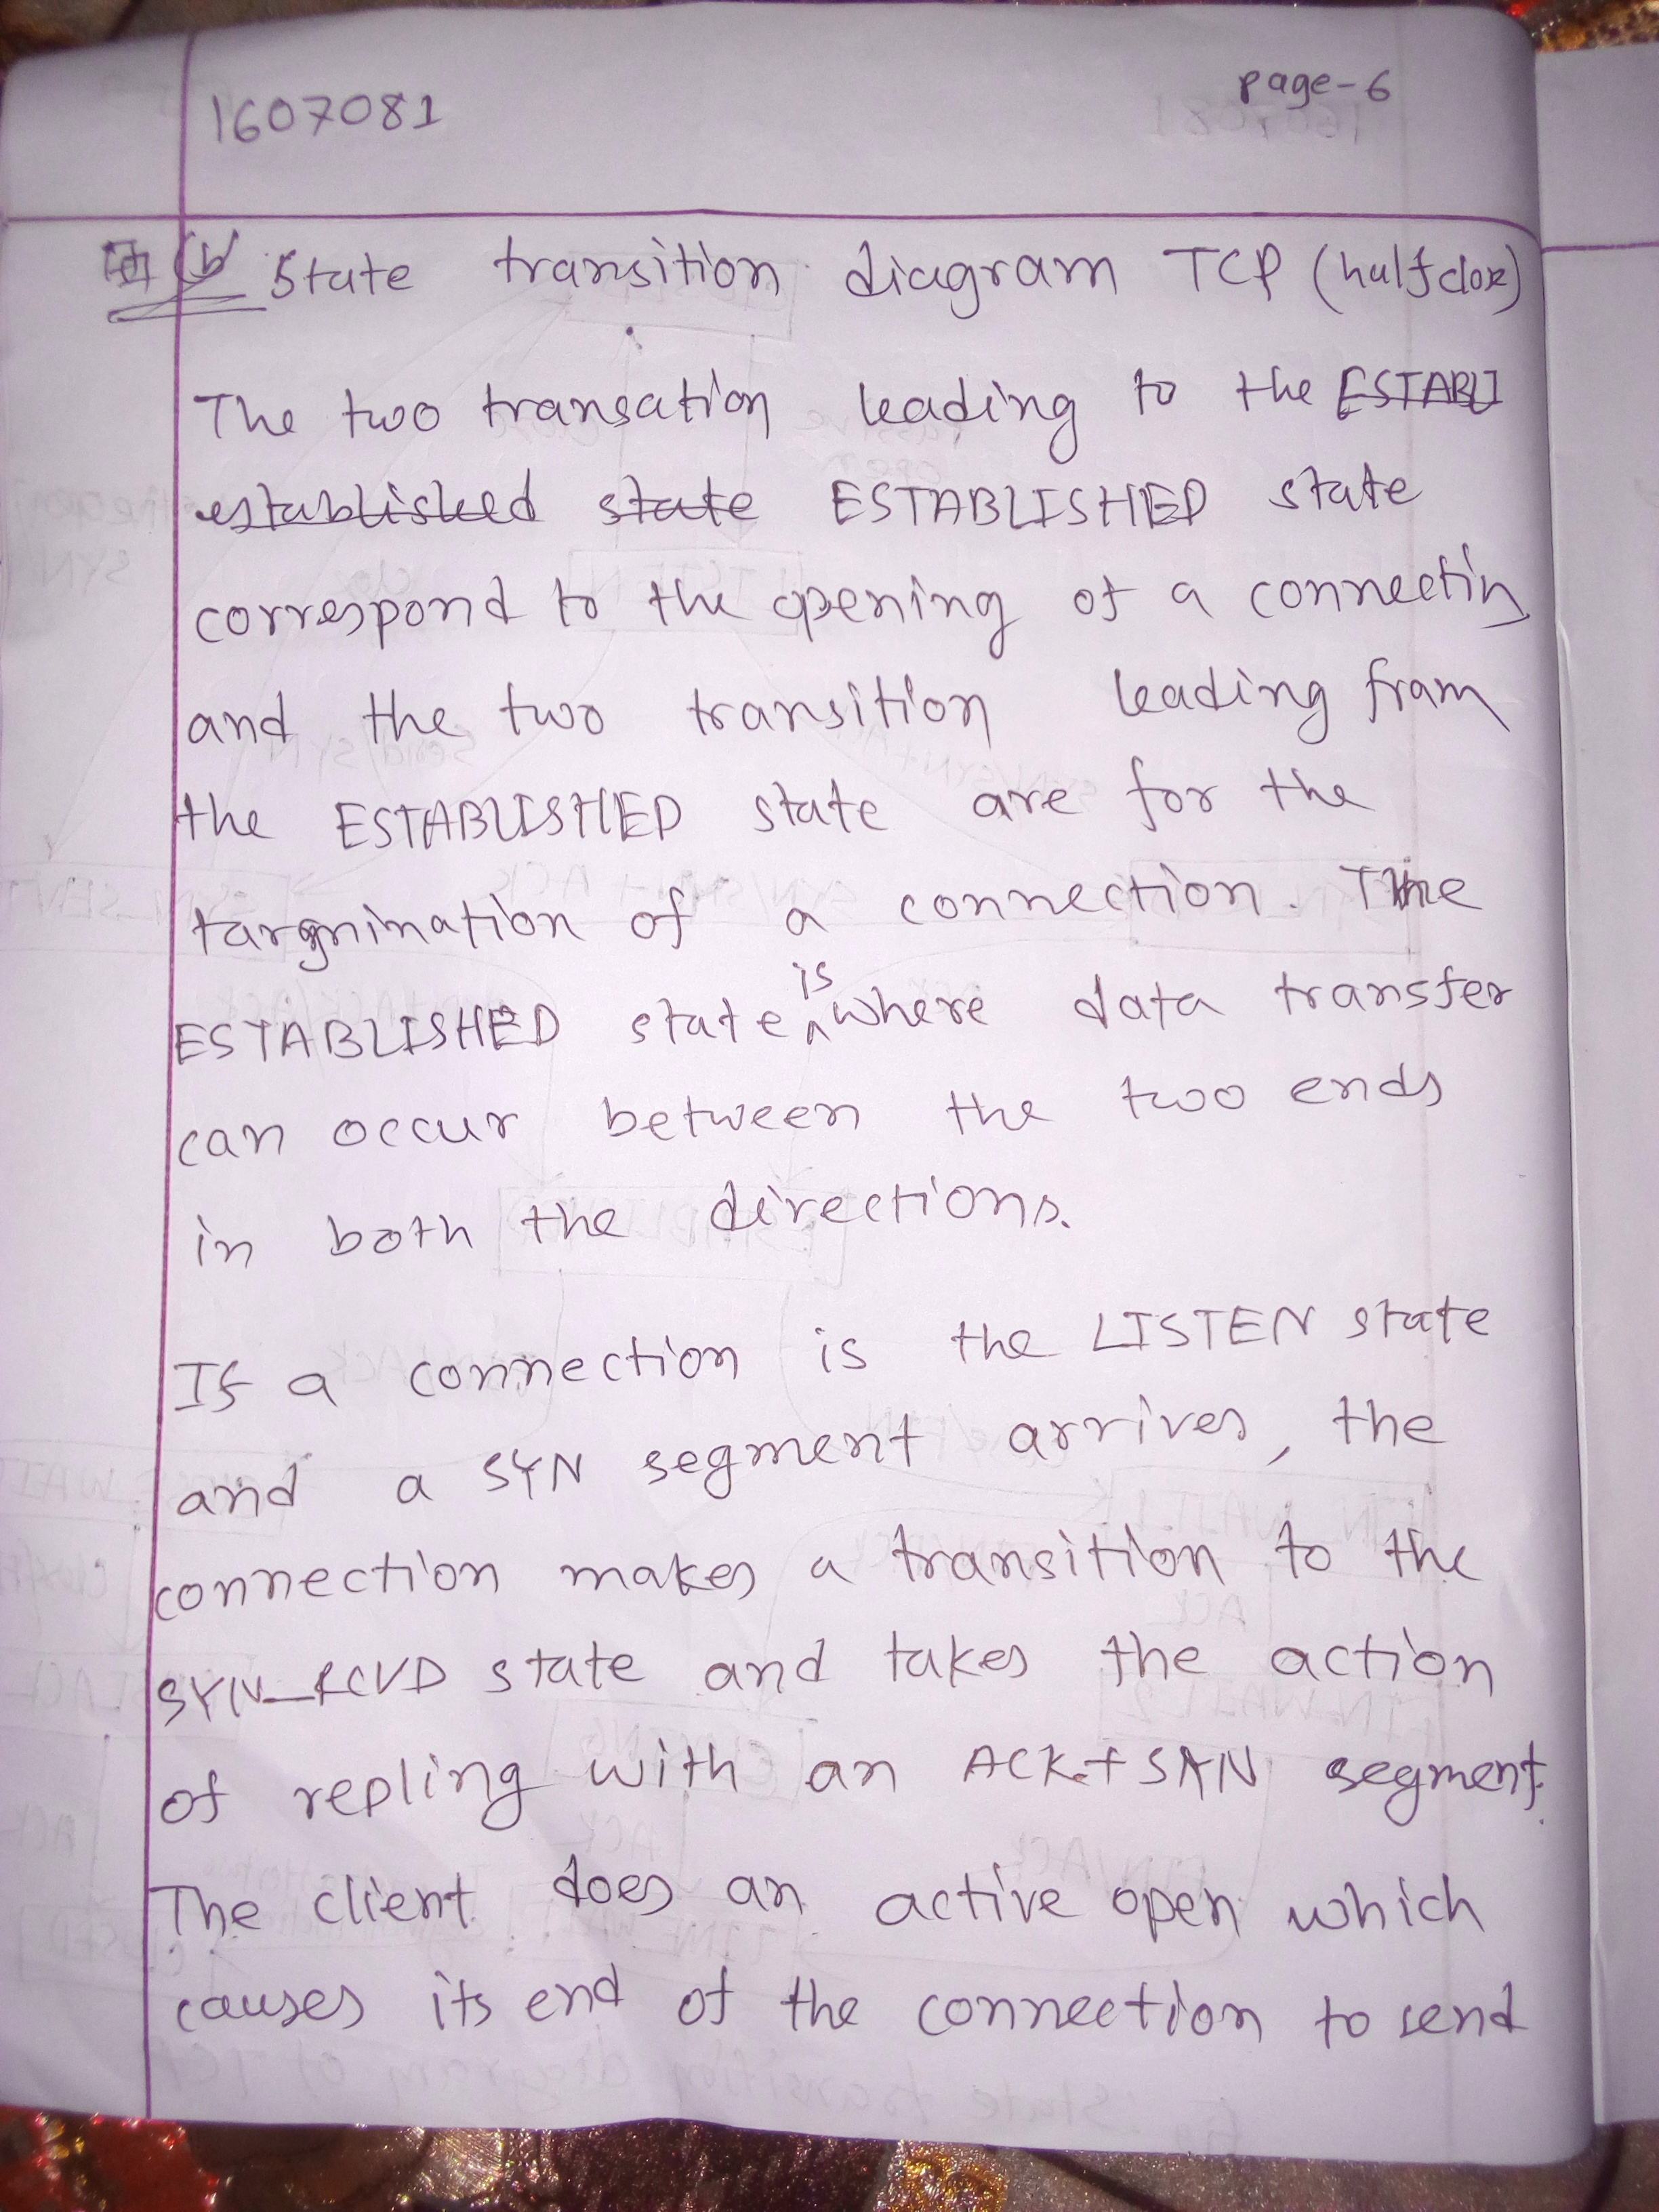 page-6
1607081
(b) State transition diagram TCP (half close)
The two transation leading to the ESTABLI
established state ESTABLISHED state
correspond to the opening of a connectin
and the two transition leading fram
the ESTABLISHED state are for the
targmination of a connection. The
is
ESTABLISHED state ^ where data transfer
can occur between the two ends
in both the directions.
If a connection is the LISTEN state
and a SYN segment arrives, the
connection makes a transition to the
SYN_RCVD state and takes the action
of repling with an ACK+SYN segment.
The client does an active open which
causes its end of the connection to send